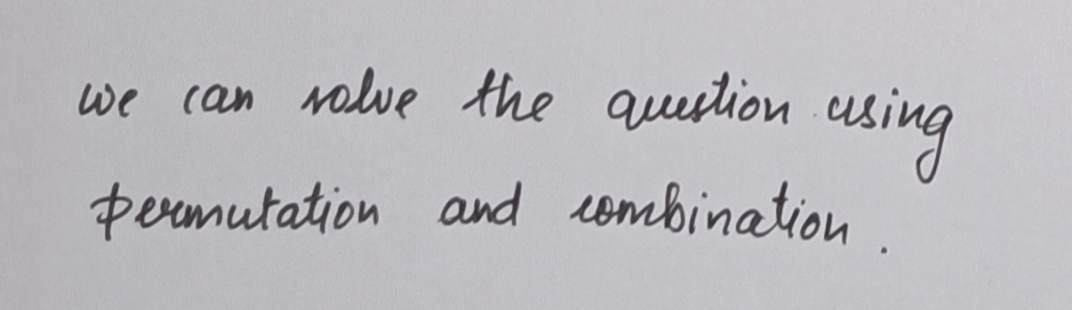 we can solve the question using
permutation and combination.